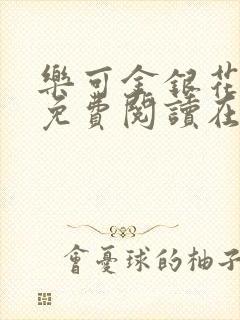 樂可金銀花
免費閱讀在
會憂球的柚子